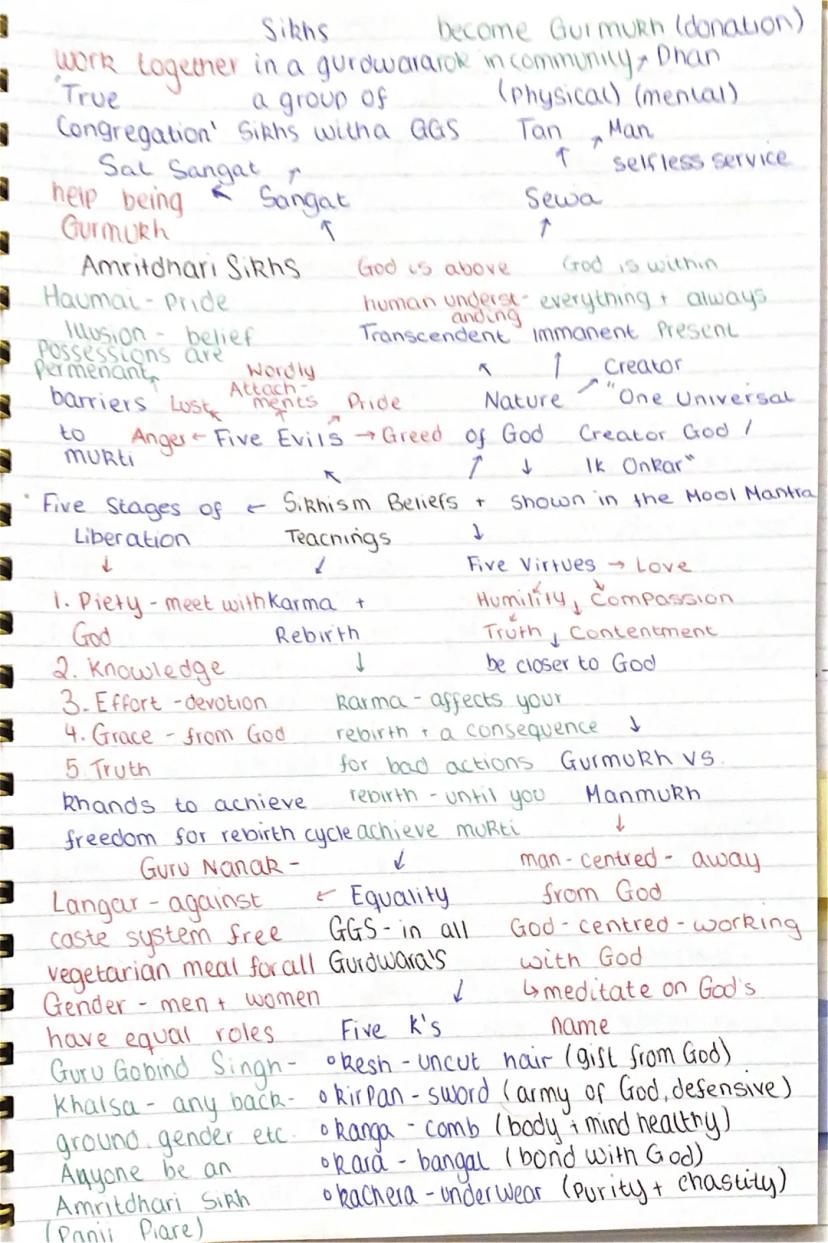 Sikhs become Gurmukh (donation)
work together in a gurdwara rok in community, → Dhan
'True a group of (physical) (mental)
Congregation' Sikhs with a GGS Tan → Man
Sat Sangat ↑ ↑ selfless service
help being ← Sangat Sewa
Gurmukh ↑ ↑
Amritdhari Sikhs God is above God is within
Haumai - pride human underst- everything + always
Illusion - belief anding
possessions are Transcendent Immanent Present
permenant Wordly ↑ ↑ Creator
barriers Lust Attach-ments Pride Nature → "One Universal
to Anger ← Five Evils → Greed of God Creator God /
mukti ↑ ↑ ↓ Ik Onkar"
Five Stages of ← Sikhism Beliefs + shown in the Mool Mantra
Liberation Teachings ↓
↓ ↓ Five Virtues → Love
1. Piety - meet with Karma + Humility ↓ Compassion
God Rebirth Truth ↓ Contentment
2. Knowledge ↓ be closer to God
3. Effort - devotion Karma - affects your
4. Grace - from God rebirth + a consequence ↓
5. Truth for bad actions Gurmukh vs.
Khands to achieve rebirth - until you Manmukh
freedom for rebirth cycle achieve mukti ↓
Guru Nanak - ↓ man-centred - away
Langar - against ← Equality from God
caste system free GGS - in all God-centred - working
vegetarian meal for all Gurdwara's with God
Gender - men + women ↓ ↳ meditate on God's
have equal roles Five K's name
Guru Gobind Singh - • Kesh - uncut hair (gift from God)
Khalsa - any back- • Kirpan - sword (army of God, defensive)
ground, gender etc. • Kanga - comb (body + mind healthy)
Anyone be an • Kara - bangal (bond with God)
Amritdhari Sikh • Kachera - underwear (purity + chastity)
(Panji Piare)